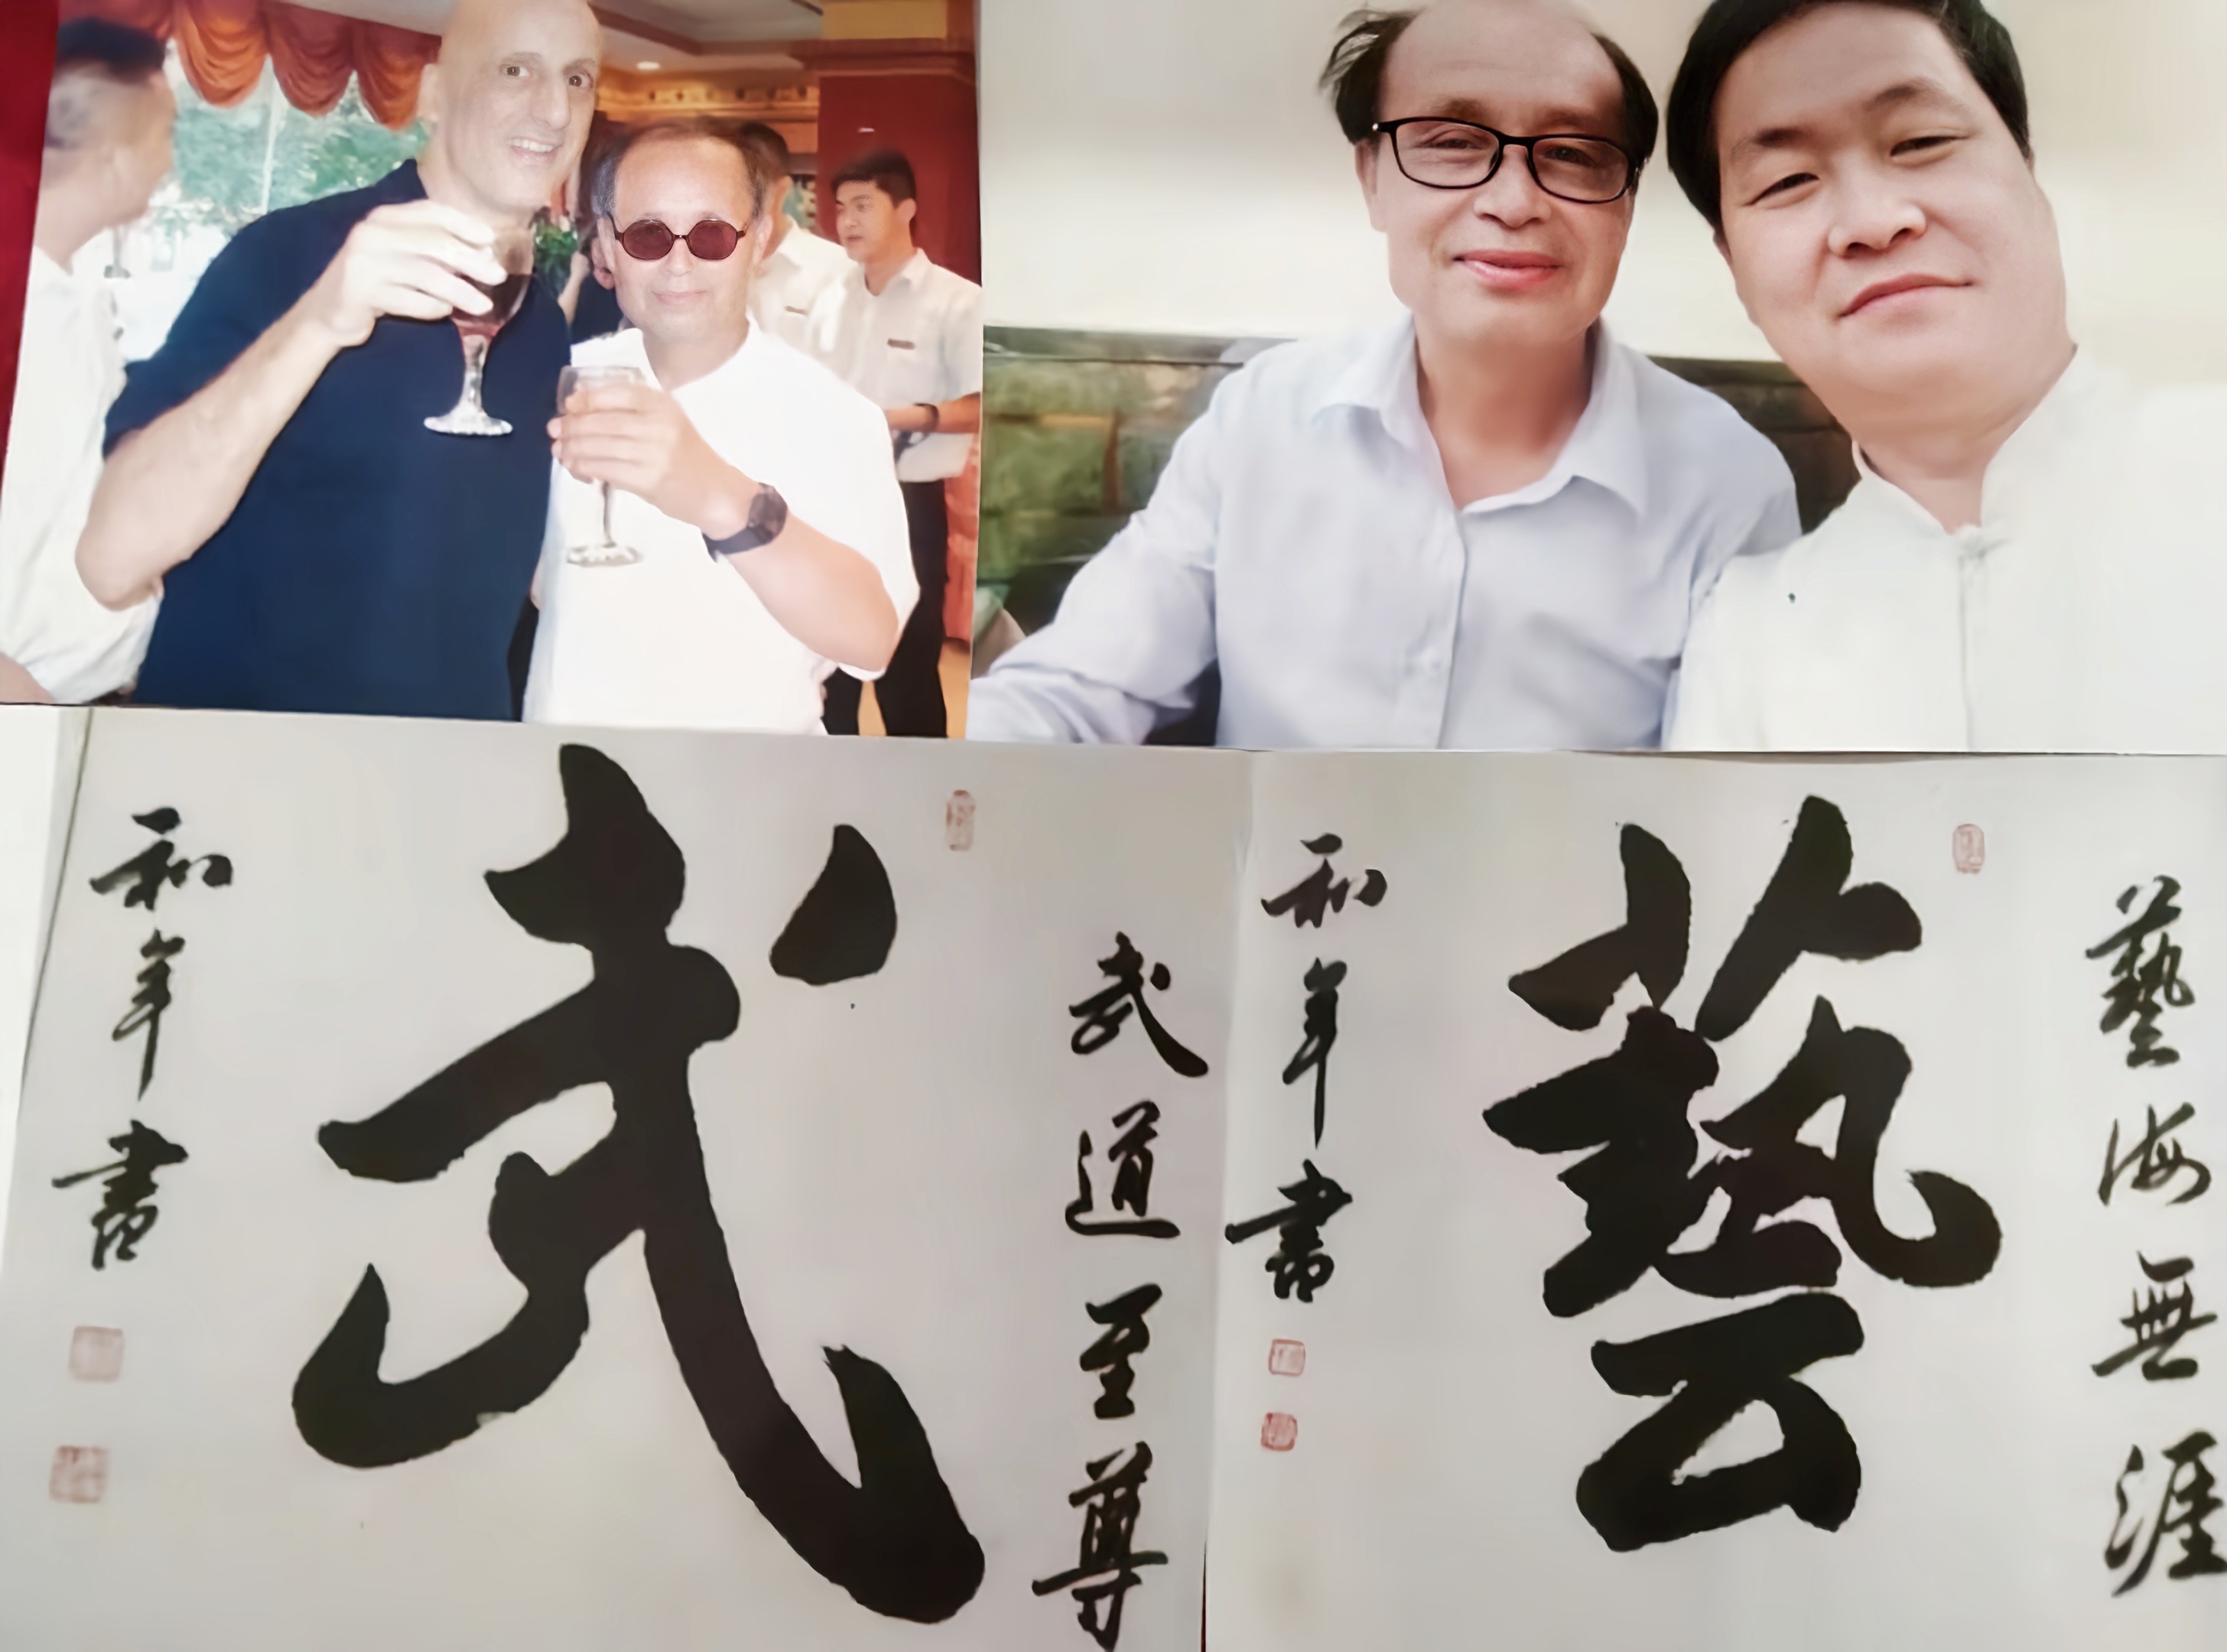 武
武道至尊
和年書
藝
藝海無涯
和年書